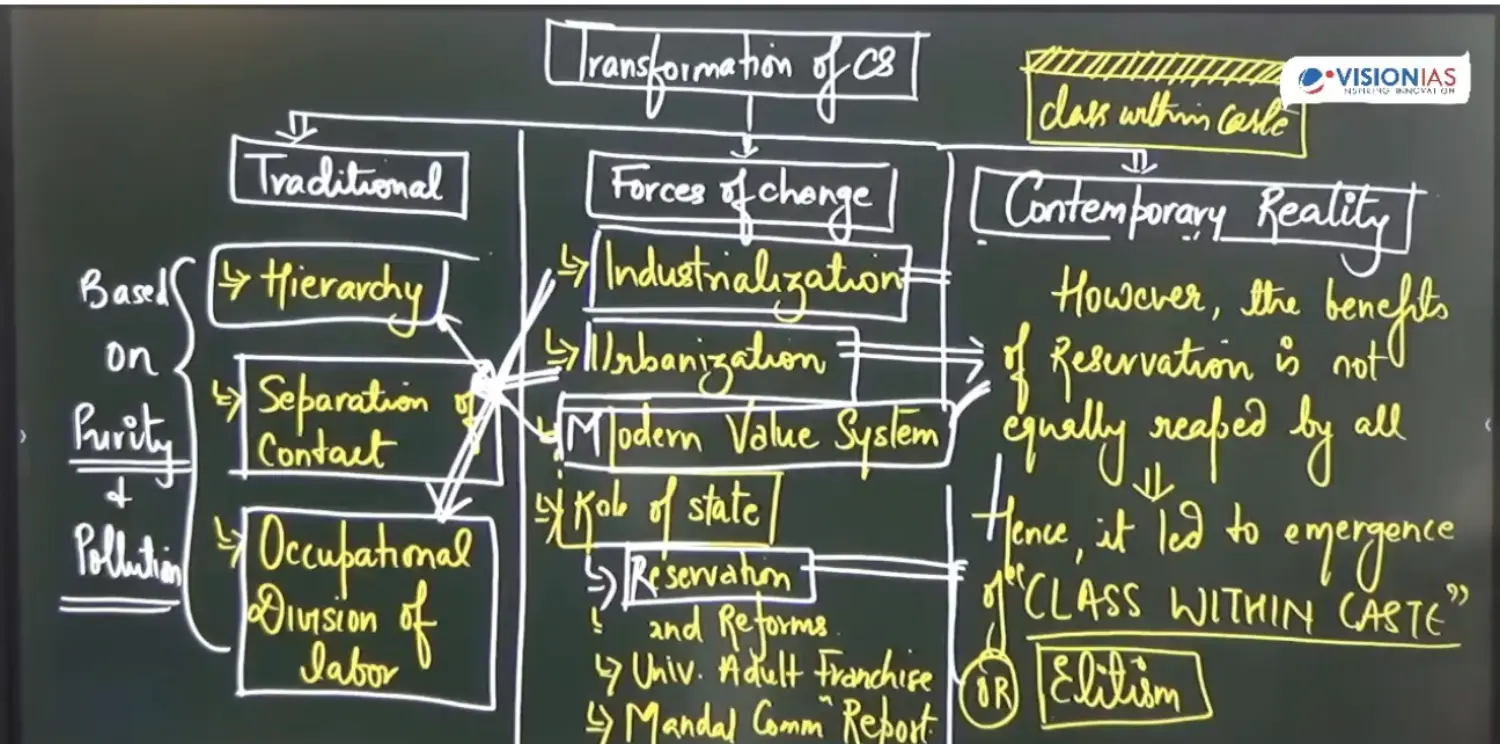 Transformation of CS
VISIONIAS
INSPIRING INNOVATION
class within caste
Traditional
Based
on
Purity
&
Pollution
↳ Hierarchy
↳ Separation of
Contact
↳ Occupational
Division of
labor
Forces of change
↳ Industrialization
↳ Urbanization
↳ Modern Value System
↳ Role of state
↳ Reservation
and Reforms
↳ Univ. Adult Franchise
↳ Mandal Commⁿ Report.
Contemporary Reality
However, the benefits
of Reservation is not
equally reaped by all
⇓
Hence, it led to emergence
of "CLASS WITHIN CASTE"
OR Elitism